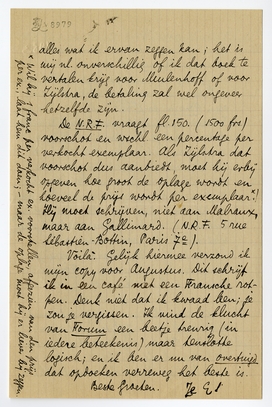 alles wat ik ervan zeggen kan; het is
mij nl. onverschillig of ik dat boek te
vertalen krijg voor Meulenhoff of voor
Zijlstra, de betaling zal wel ongeveer
hetzelfde zijn.
De N.R.F. vraagt fl. 150. (1500 frs)
voorschot en wschl een percentage per
verkocht exemplaar. Als Zijlstra dat
voorschot dus aanbiedt, moet hij erbij
opgeven hoe groot de oplage wordt en
hoeveel de prijs wordt per exemplaar.*)
Hij moet schrijven, niet aan Malraux,
maar aan Gallimard. (N.R.F. 5 rue
Sébastien-Bottin, Paris 7e).
Voilà. Gelijk hiermee verzond ik
mijn copy voor Augustus. Dit schrijf
ik in een café met een Fransche rot-
pen. Denk niet dat ik kwaad ben; je
zou je vergissen. Ik vind de klucht
van Forum een beetje treurig (in
iedere beteekenis) maar tenslotte
logisch; en ik ben er nu van overtuigd
dat opdoeken verreweg het beste is.
Beste Groeten.
Je E
* Wil hij 1 franc per verkocht ex. voorstellen, afgezien van den prijs
per ex., laat hem dit doen; - maar de oplage moet hij er liever bij zeggen.